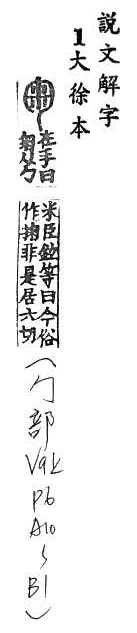 說文解字
1大徐本
在手曰
匊从勹
米臣鉉等曰今俗
作掬非是居六切
(勹部 V9上 P6 A10 ~ B1)